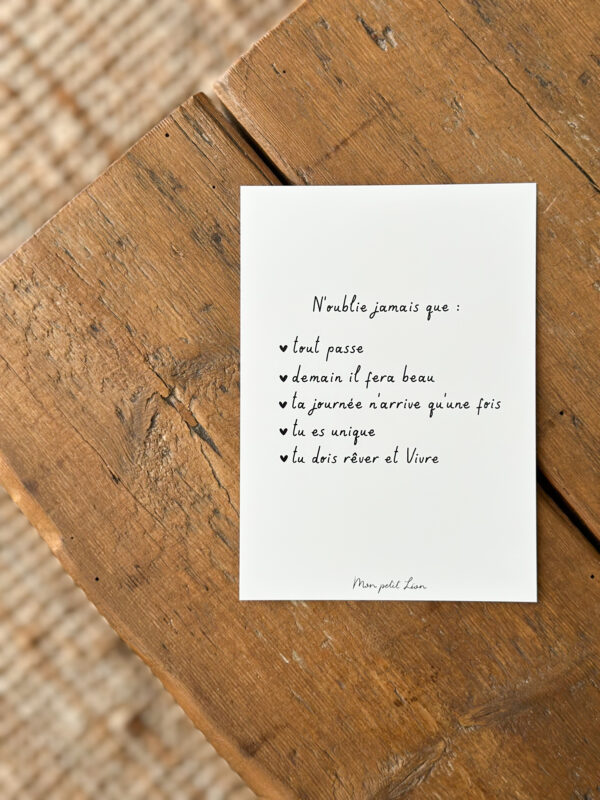 N'oublie jamais que :
♥ tout passe
♥ demain il fera beau
♥ ta journée n'arrive qu'une fois
♥ tu es unique
♥ tu dois rêver et Vivre
Mon petit Lion